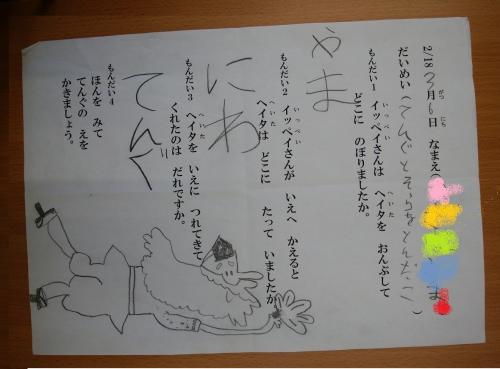 2/18 3月6日 なまえ(
がつ にち
だいめい(てんぐとそらをとんだこ)
もんだい1 イッペイさんは ヘイタを おんぶして
いっぺい へいた
どこに のぼりましたか。
やま
もんだい2 イッペイさんが いえへ かえると
いっぺい
ヘイタは どこに たって いましたか
へいた
にわ
もんだい3 ヘイタを いえに つれてきて
へいた
くれたのは だれですか。
てんぐ
もんだい4
ほんを みて
てんぐの えを
かきましょう。